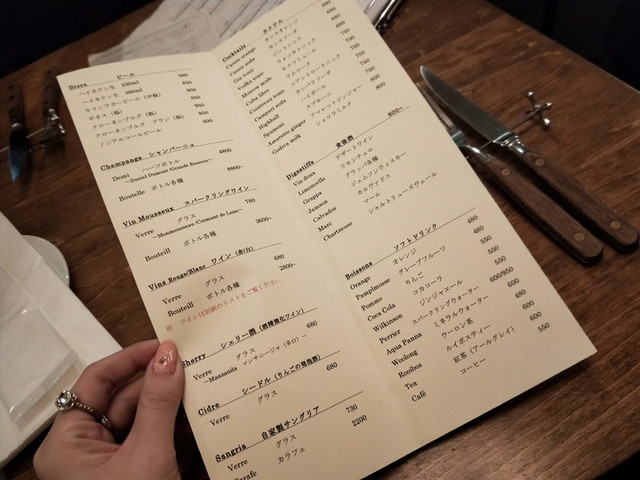 Biere ビール
ハイネケン生 250ml 680
ハイネケン生 380ml 950
キリンフリービール (小瓶)
ギネス (瓶)
クローネンブルグ (瓶)
クローネンブルグ ブラン (瓶)
ノンアルコールビール 600
Champange シャンパーニュ
Demi ハーフボトル 4800
～Daniel Dumont /Grande Reserve～
Boutelle ボトル各種 8800~
Vin Mousseux スパークリングワイン
Verre グラス 780
～Monmousseau /Cremant de Loire～
Bouteill ボトル各種 3600~
Vins Rouge/Blanc ワイン (赤/白)
Verre グラス 680
Bouteill ボトル各種 2800~
※ ワインは別紙のリストをご覧ください。
Sherry シェリー酒 (酒精強化ワイン)
Verre グラス 680
～Manzanila マンサニージャ (辛口) ～
Cidre シードル (りんごの発泡酒)
Verre グラス 680
Sangria 自家製サングリア
Verre グラス 730
Carafe カラフェ 2200
Cocktails カクテル
Cassis orange カシスオレンジ 680
Cassis soda カシスソーダ
Gin tonic ジントニック
Vodka tonic ウォッカトニック
Moscow mule モスコミュール
Cuba libre ラムコーク
Cointreau tonic コアントロートニック
Campari soda カンパリソーダ
Highball ハイボール
Spumoni スプモーニ
Amaretto ginger アマレットジンジャー
Godiva milk ショコラミルク
Digestiffs 食後酒 800~
Vin doux デザートワイン
Limoncello リモンチェロ
Grappa グラッパ各種
Jamson ジェムソンウィスキー
Calvados カルヴァドス
Marc マール
Chartreuse シャルトリューズヴェール
Boissons ソフトドリンク
Orange オレンジ 480
Pamplmousse グレープフルーツ 480
Pomme りんご 550
Coca Cola コカコーラ 550
Wilkinson ジンジャエール 550
Perrier スパークリングウォーター 600/950
Aqua Panna ミネラルウォーター
Woolong ウーロン茶 480
Rooibos ルイボスティー 600
Tea 紅茶 (アールグレイ) 600
Café コーヒー 550